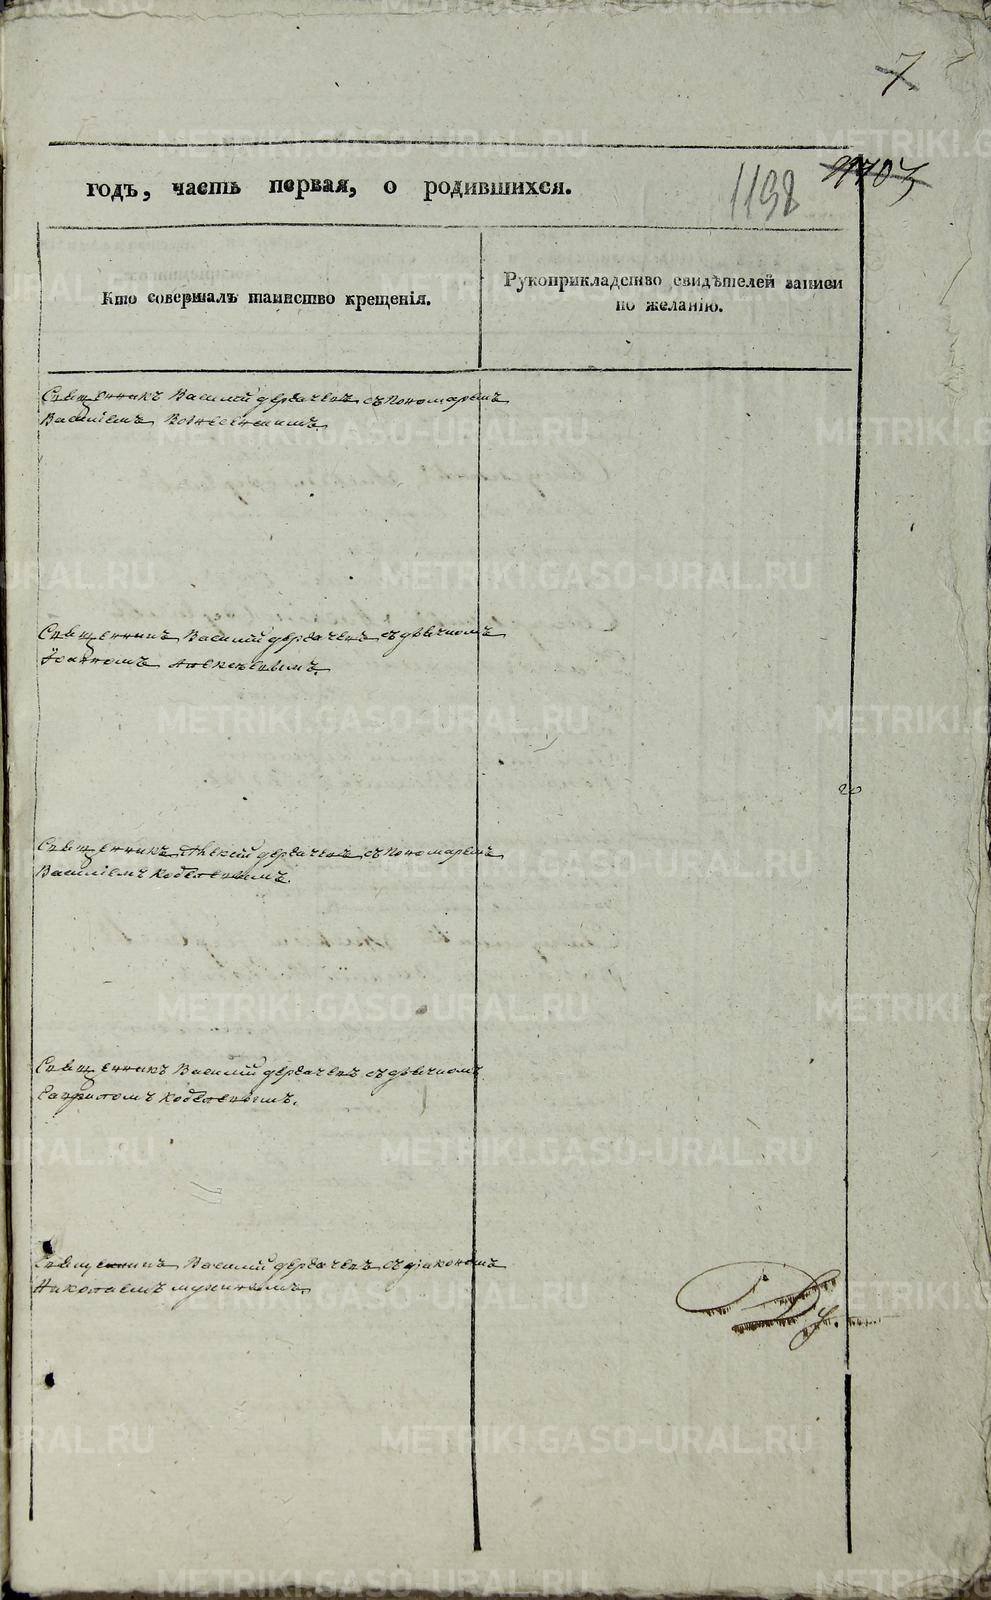 7
1198
годъ, часть первая, о родившихся.
Кто совершалъ таинство крещенія.
Рукоприкладство свидѣтелей записи
по желанію.
Священникъ Василій Дерзачевъ съ пономаремъ
Василіемъ Вознесенскимъ.
Священникъ Василій Дерзачевъ съ дьячкомъ
Іоанномъ Алексѣевымъ.
Священникъ Алексій Дерзачевъ съ пономаремъ
Василіемъ
Священникъ Василій Дерзачевъ съ дьячкомъ
Священникъ Василій Дерзачевъ съ діакономъ
Николаемъ
METRIKI.GASO-URAL.RU